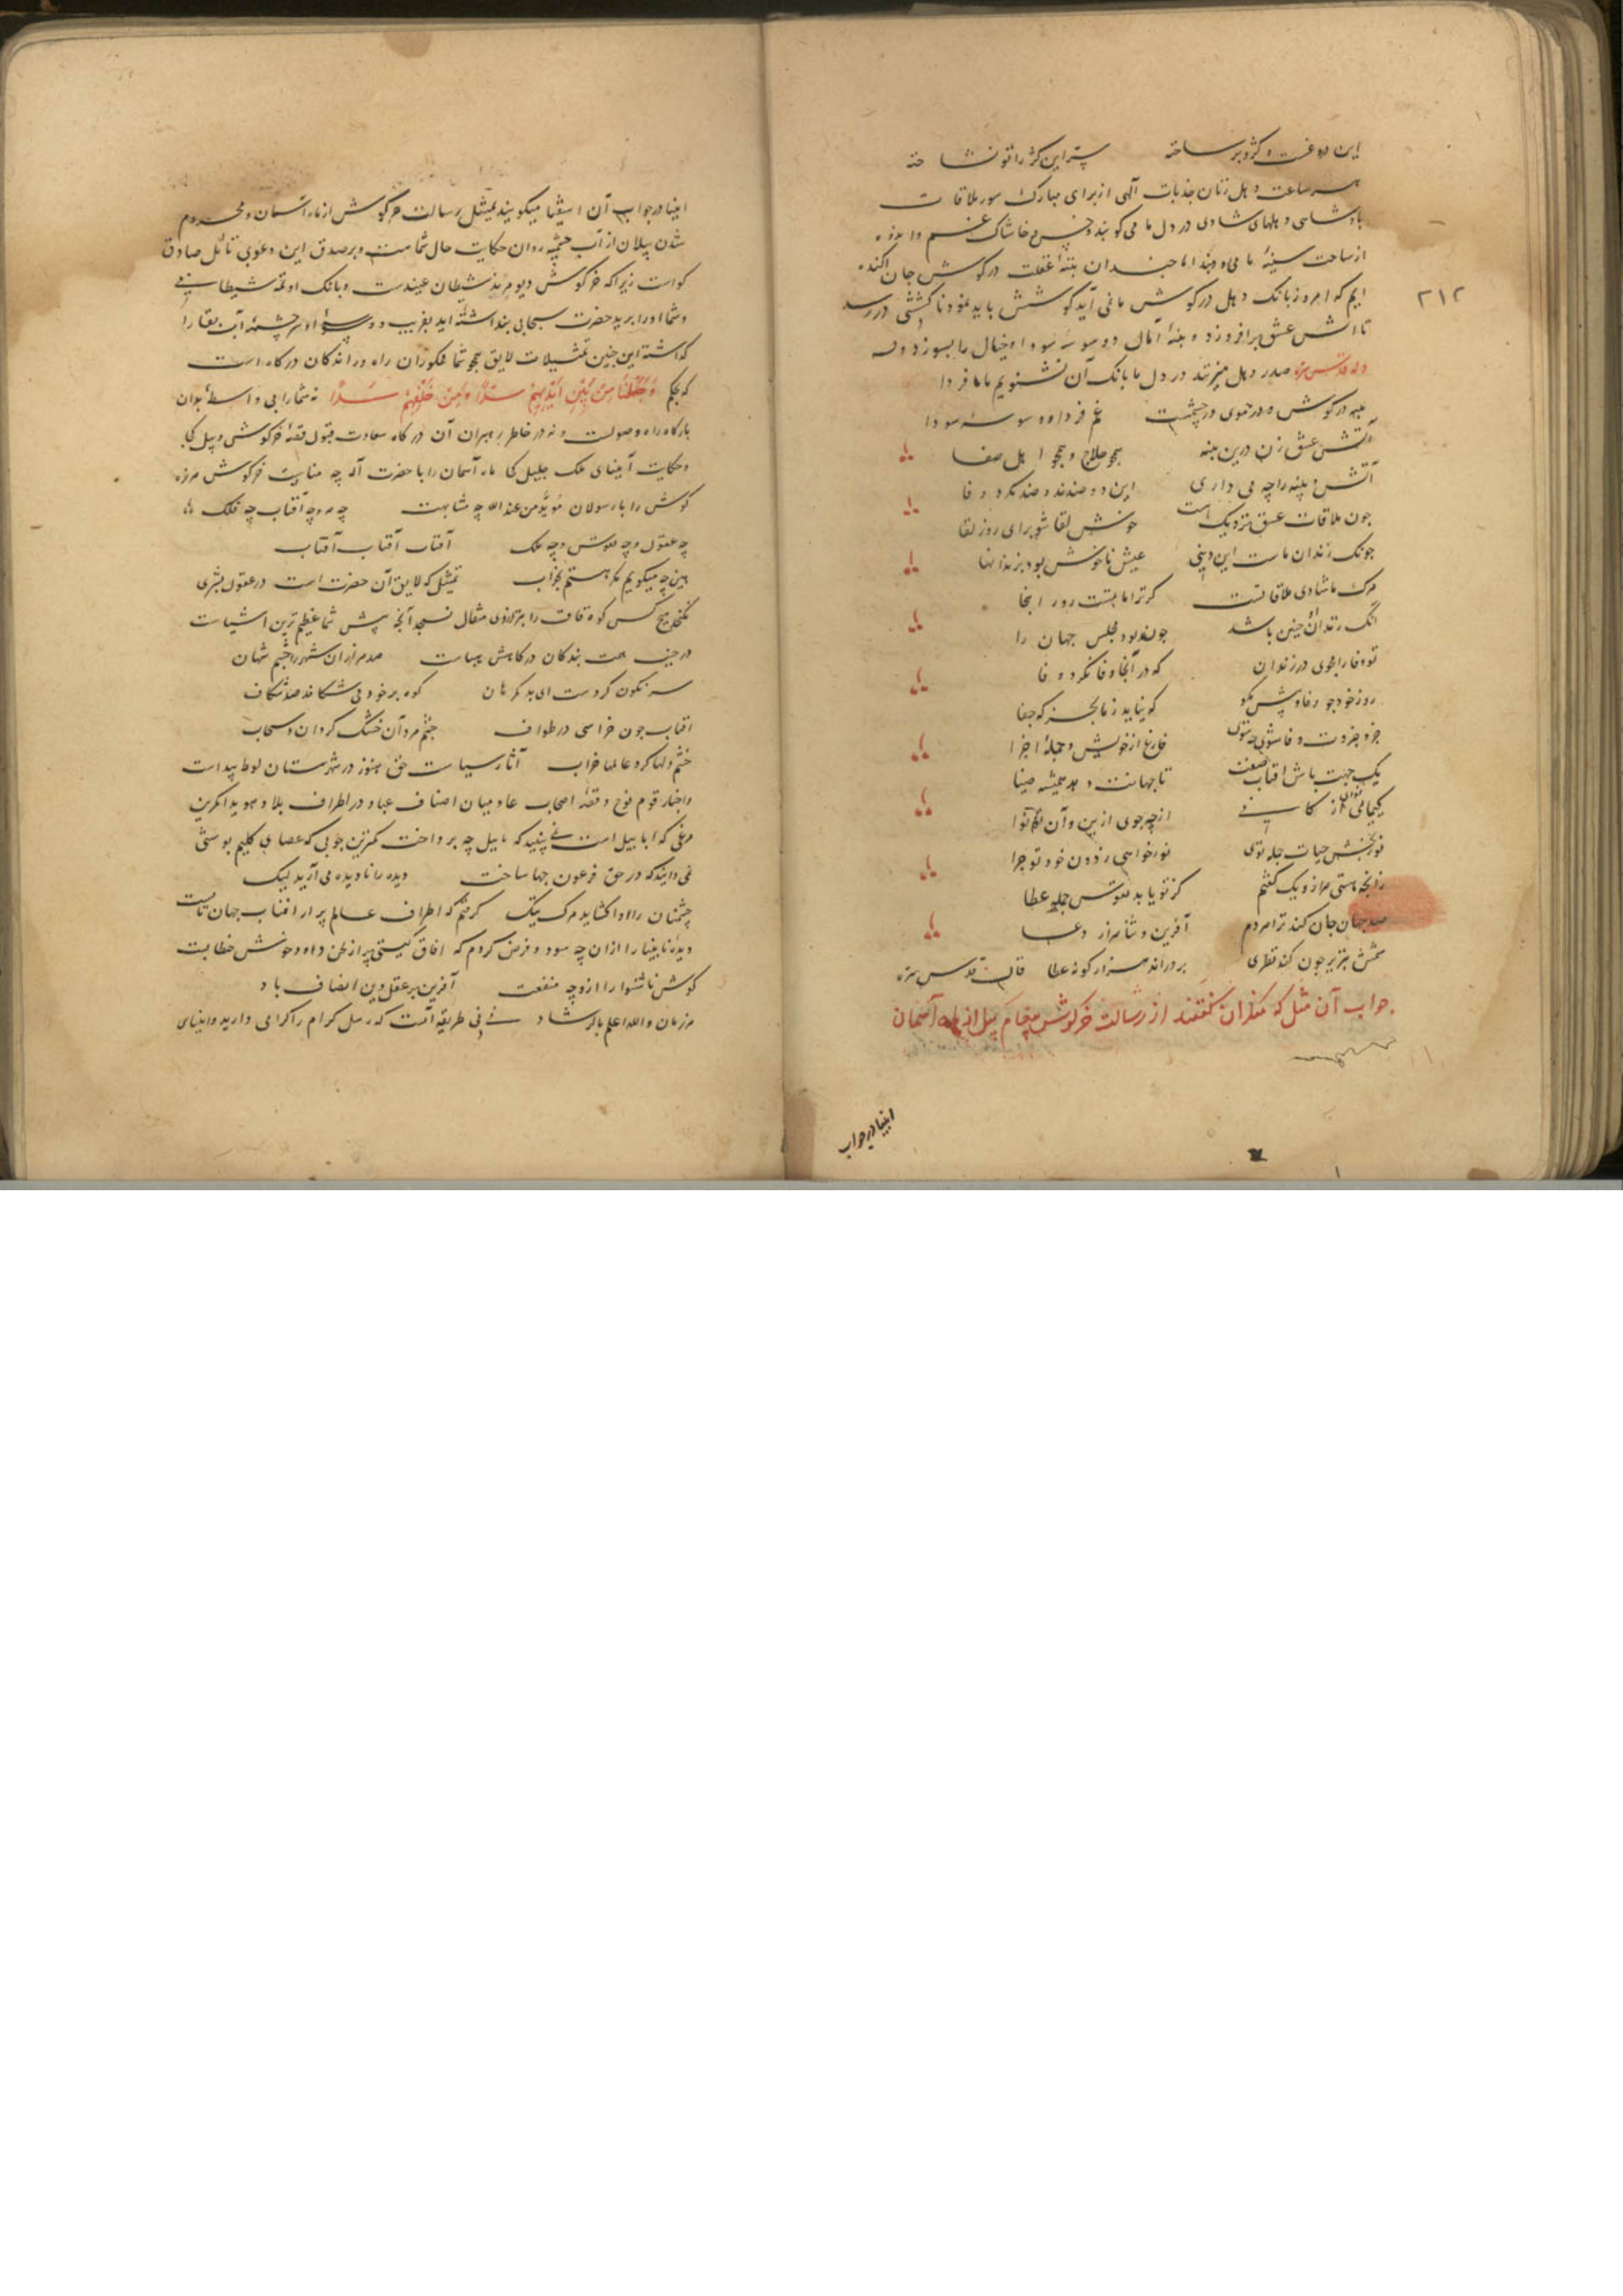 این دروغست و کژ و بر ساخته سر این کژ را تو نشناخته
هر ساعت دهل زنان جذبات آلهی از برای مبارک سور ملاقات
بادشاهی دهلهای شادی در دل ما می کوبند و خس و خاشاک غم و اندوه
از ساحت سینهٔ ما می روبند اما چندان پنبهٔ غفلت در گوش جان آکنده
ایم که امروز بانک دهل در گوش ما نمی آید کوشش باید نمود تا کششی در رسد
۲۱۲
تا آتش عشق برافروزد و پنبهٔ آمال و وسوسهٔ سودا و خیال را بسوزد وله
وله قدس سره صدر دهل میزنند در دل ما بانک آن نشنویم ما ما فردا
پنبه در گوش و موی در چشمست غم فردا و وسوسهٔ سودا
آتش عشق زن درین پنبه همچو حلاج و همچو اهل صفا
آتش و پنبه را چه می داری این دو ضدند و ضد نکرد وفا
چون ملاقات عشق نزدیکست خوش لقا شو برای روز لقا
چونک زندان ماست این دنیی عیش ناخوش بود بزندانها
مرک ما شادی ملاقاتست گر ترا ماتمست رو ز اینجا
آنک زندان او چنین باشد چون بود مجلس جهان را
تو وفا را مجوی در زندان که در آنجا وفا نکرد وفا
که نیاید ز ما بجز که جفا
فارغ از خویش و جملهٔ اجزا
یک جهت باش آفتاب صفت تا جهانت دهد همیشه ضیا
کیمیای از چه جوی از این و آن
نور بخش حیات جمله توی نور خواهی ز دون خود تو چرا
زانچه هستی هزار و یک گفتم کز تو یابد نفوس جمله عطا
صد جهان جان کند ترا هر دم آفرین و ثنا هزار دعا
شمس تبریز چون کند نظری بر دراند هزار گونه عطا قال قدس سره
جواب آن مثل که منکران گفتند از رسالت خرگوش پیغام پیل از ماه آسمان
انبیا در جواب
انبیا در جواب آن اشقیا میگویند تمثیل رسالت خرگوش از ماه آسمان و محروم
شدن پیلان از آب چشمه روان حکایت حال شماست و بر صدق این دعوی قائل صادق
گواست زیرا که خرگوش دیو مرید شیطان عنیدست و بانک او شیطانی
و شما او را برید حضرت سبحانی پنداشته اید بفریب و وسوسهٔ او سر چشمهٔ آب بقا را
گذاشته این چنین تمثیلات لایق همچو شما کوران راه و راندگان درگاه است
که بحکم وَجَعَلْنَا مِنْ بَیْنِ اَیْدِیهِمْ سَدًّا وَمِنْ خَلْفِهِمْ سَدًّا نه شما را بی واسطه بدان
بارگاه راه وصولست و نه در خاطر رهبران آن درگاه سعادت قبول قصهٔ خرگوش و پیل کجا
و حکایت انبیای ملک جلیل کجا ماه آسمان را با حضرت آله چه مناسبت خرگوش هرزه
گوش را با رسولان مؤید من عند الله چه مشابهت چه مه و چه آفتاب چه فلک ها
چه عقول و چه نفوس و چه ملک آفتاب آفتاب آفتاب
این چه میگویم مگر هستم بخواب تمثیل که لایق آن حضرت است در عقول بشری
نگنجد هیچ کس کوه قاف را بترازوی مثقال نسنجد آنچه پیش شما عظیم ترین اشیاست
در جنب همت بندگان درگاهش هباست صد هزاران شهر را خشم شهان
سرنگون کردست ای بد گمرهان کوه بر خود می شکافد صد شکاف
آفتاب چون خراسی در طواف خشم مردان خشک گرداند سحاب
خشم دلها کرد عالمها خراب آثار سیاست حق هنوز در شهرستان لوط پیداست
و اخبار قوم نوح و قصهٔ اصحاب عاد میان اصناف عباد در اطراف بلاد هویدا کمترین
مرغی که ابابیل است نمی بینید که با پیل چه پرداخت کمترین چوبی که عصای کلیم بوستی
نمی دانید که در حق فرعون چها ساخت دیده را نادیده می آرید لیک
چشمتان را واگشاید مرگ نیک گرفتم که اطراف عالم پر از آفتاب جهان تابست
دیدهٔ نابینا را از آن چه سود و فرض کردم که آفاق گیتی پر از لحن داود خوش خطابست
گوش ناشنوا را ازو چه منفعت آفرین بر عقل و دین انصاف باد
هر زمان والله اعلم بالرشاد نی نی طریقه آنست که رسل کرام را گرامی دارید و انبیای